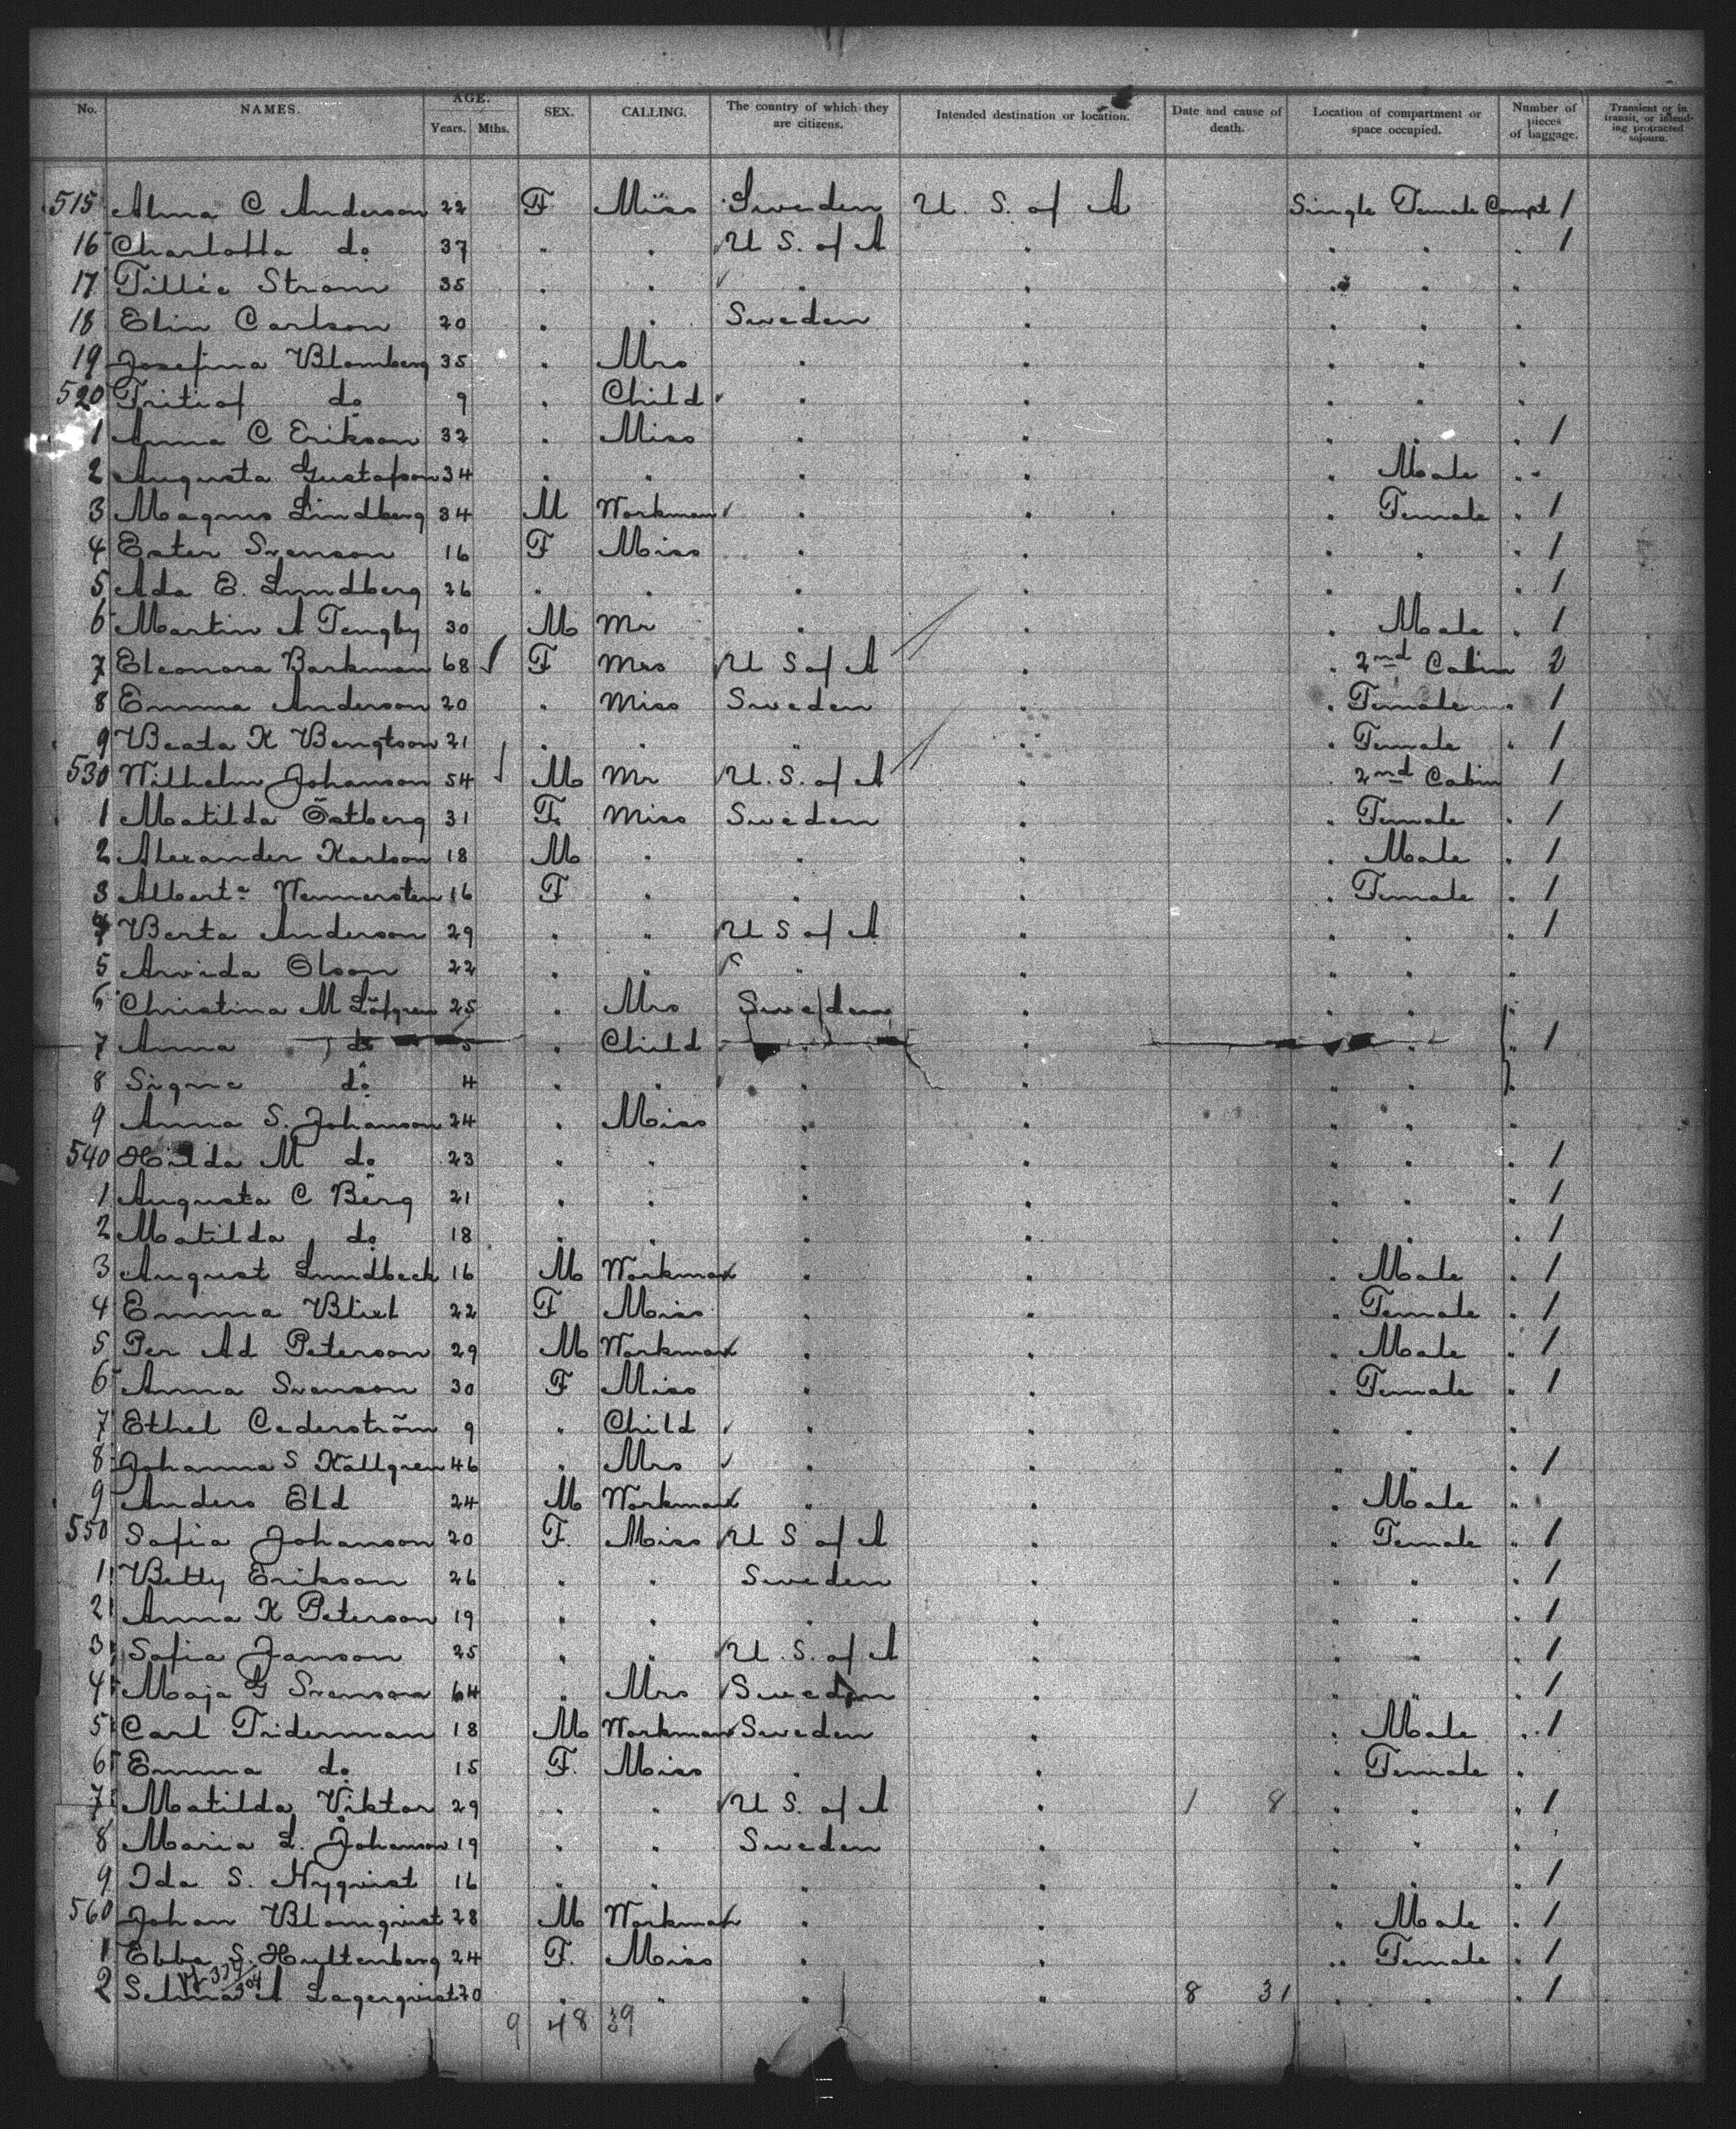 No. NAMES. AGE. Years. Mths. SEX. CALLING. The country of which they are citizens. Intended destination or location. Date and cause of death. Location of compartment or space occupied. Number of pieces of baggage. Transient or in transit, or intending protracted sojourn.
515 Alma C Anderson 22 F Miss Sweden U. S. of A Single Female Compt 1
16 Charlotta do 37 " " U S. of A " " " " 1
17 Tillie Strom 35 " " " " " " "
18 Elin Carlson 20 " " Sweden " " " "
19 Josefina Blomberg 35 " Mrs " " " " "
520 Fritiof do 9 " Child " " " " "
1 Anna C Erikson 32 " Miss " " " " " 1
2 Augusta Gustafson 34 " " " " " Male " "
3 Magnus Lindberg 34 M Workman " " " Female " 1
4 Ester Svenson 16 F Miss " " " " " 1
5 Ada E. Lundberg 26 " " " " " " " 1
6 Martin A Tengby 30 M Mr " " " Male " 1
7 Eleonora Barkman 68 F Mrs U S of A " " 2nd Cabin 2
8 Emma Anderson 20 " Miss Sweden " " Female " 1
9 Beata K Bengtson 21 " " " " " Female " 1
530 Wilhelm Johanson 54 M Mr U. S. of A " " 2nd Cabin 1
1 Matilda Östberg 31 F. Miss Sweden " " Female " 1
2 Alexander Karlson 18 M " " " " Male " 1
3 Alberta Wennersten 16 F " " " " Female " 1
4 Berta Anderson 29 " " U S of A " " " 1
5 Arvida Olson 22 " " " " " " "
6 Christina M Löfgren 25 " Mrs Sweden " " "
7 Anna do 5 " Child " " " " 1
8 Signe do 4 " " " " " " "
9 Anna S. Johanson 24 " Miss " " " " "
540 Hilda M do 23 " " " " " " " 1
1 Augusta C Berg 21 " " " " " " " 1
2 Matilda do 18 " " " " " " " 1
3 August Lundbeck 16 M Workman " " " Male " 1
4 Emma Blixt 22 F Miss " " " Female " 1
5 Per Ad Peterson 29 M Workman " " " Male " 1
6 Anna Svenson 30 F Miss " " " Female " 1
7 Ethel Cederström 9 " Child " " " " "
8 Johanna S Källgren 46 " Mrs " " " " " 1
9 Anders Eld 24 M Workman " " " Male "
550 Sofia Johanson 20 F. Miss U S of A " " Female " 1
1 Betty Erikson 26 " " Sweden " " " " 1
2 Anna K Peterson 19 " " " " " " " 1
3 Sofia Janson 25 " " U. S. of A " " " " 1
4 Maja G Svenson 64 " Mrs Sweden " " " " 1
5 Carl Friderman 18 M Workman Sweden " " Male " 1
6 Emma do 15 F. Miss " " " Female "
7 Matilda Viktor 29 " " U S. of A " 1 8 " " " 1
8 Maria L. Johanson 19 " " Sweden " " " "
9 Ida S. Nyqvist 16 " " " " " " " 1
560 Johan Blomqvist 28 M Workman " " " Male " 1
1 Ebba S. Hultenberg 24 F. Miss " " " Female " 1
2 Selma A Lagerqvist 20 " " " " 8 31 " " " 1
9 48 39